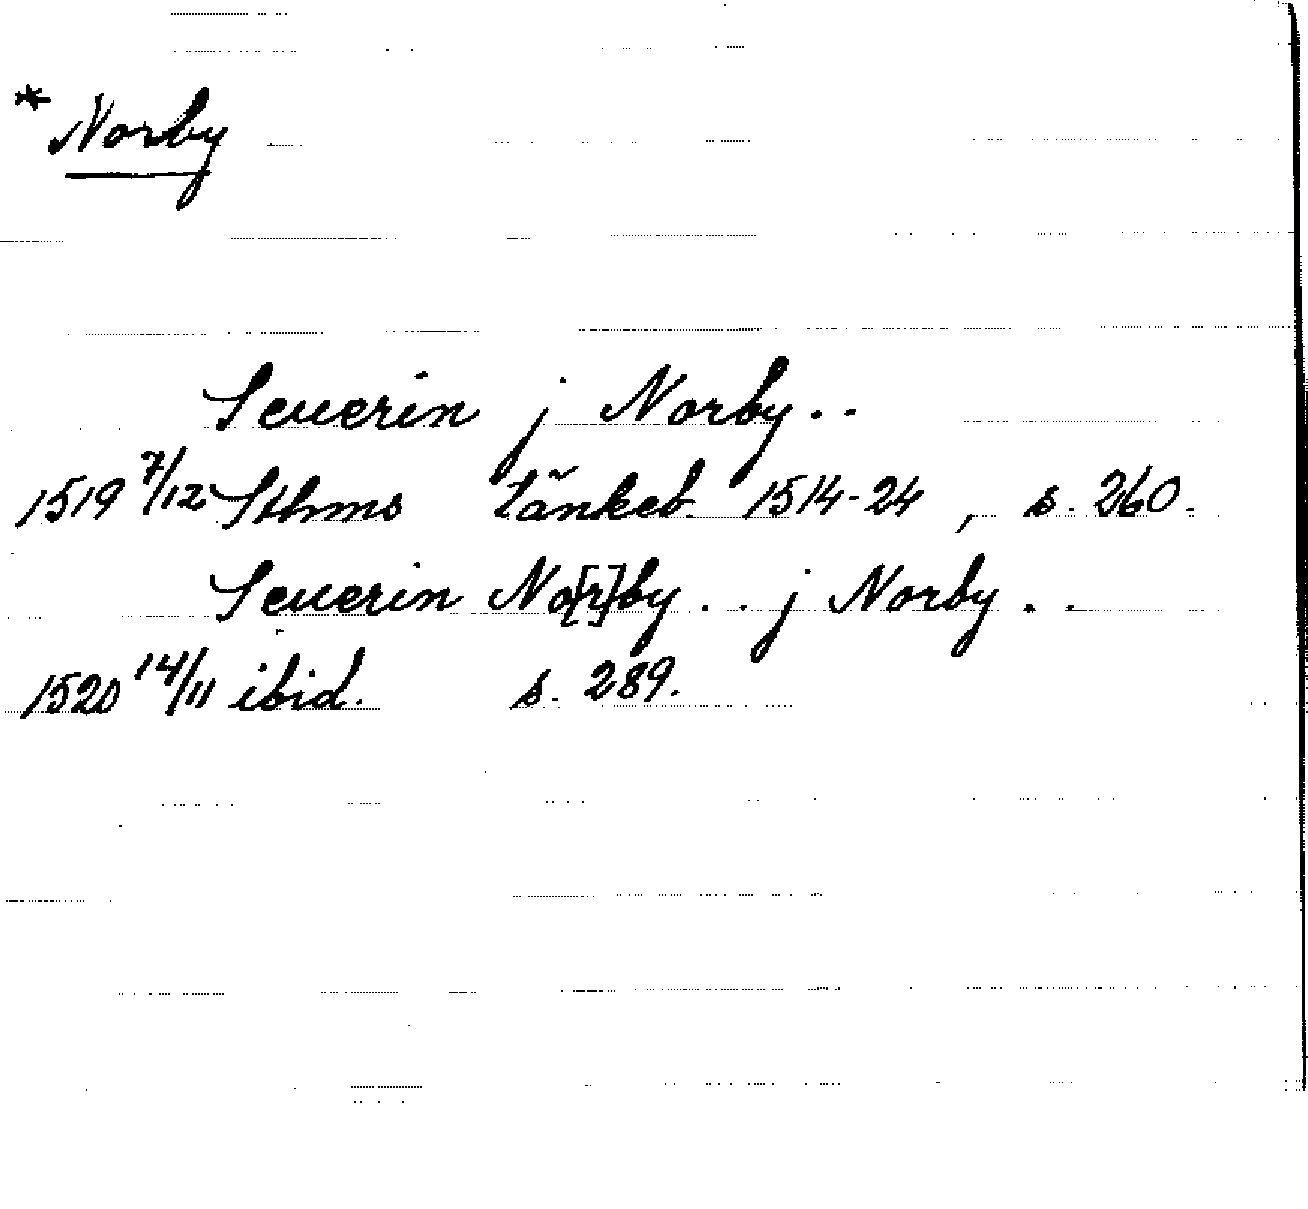 * Norby
Seuerin j Norby..
1519 7/12 Sthms tänkeb. 1514-24, s. 260.
Seuerin No[r]by.. j Norby..
1520 14/11 ibid. s. 289.